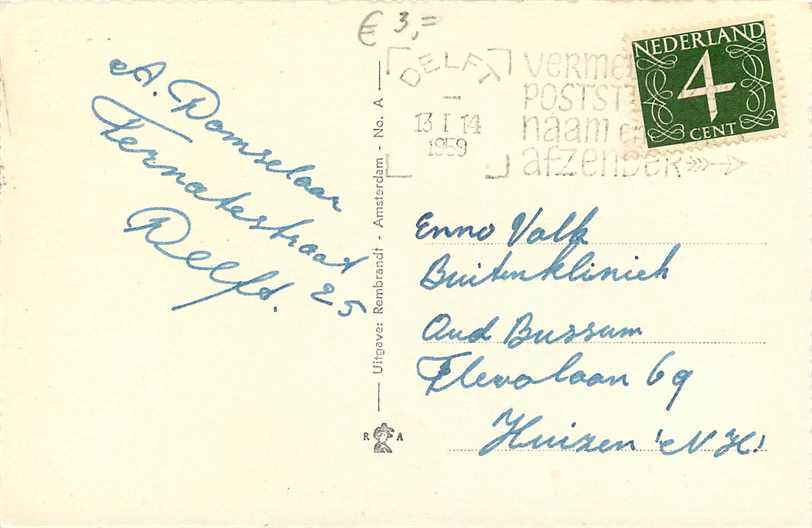 € 3,=
A. Damselaar
Ternatestraat 25
Delft.
Uitgave: Rembrandt - Amsterdam - No. A
R A
DELFT
13 I 14
1959
VERME
POSTST
naam en
afzender
NEDERLAND
4
CENT
Enno Valk
Buitenkliniek
Oud Bussum
Flevolaan 69
Huizen 'N.H!